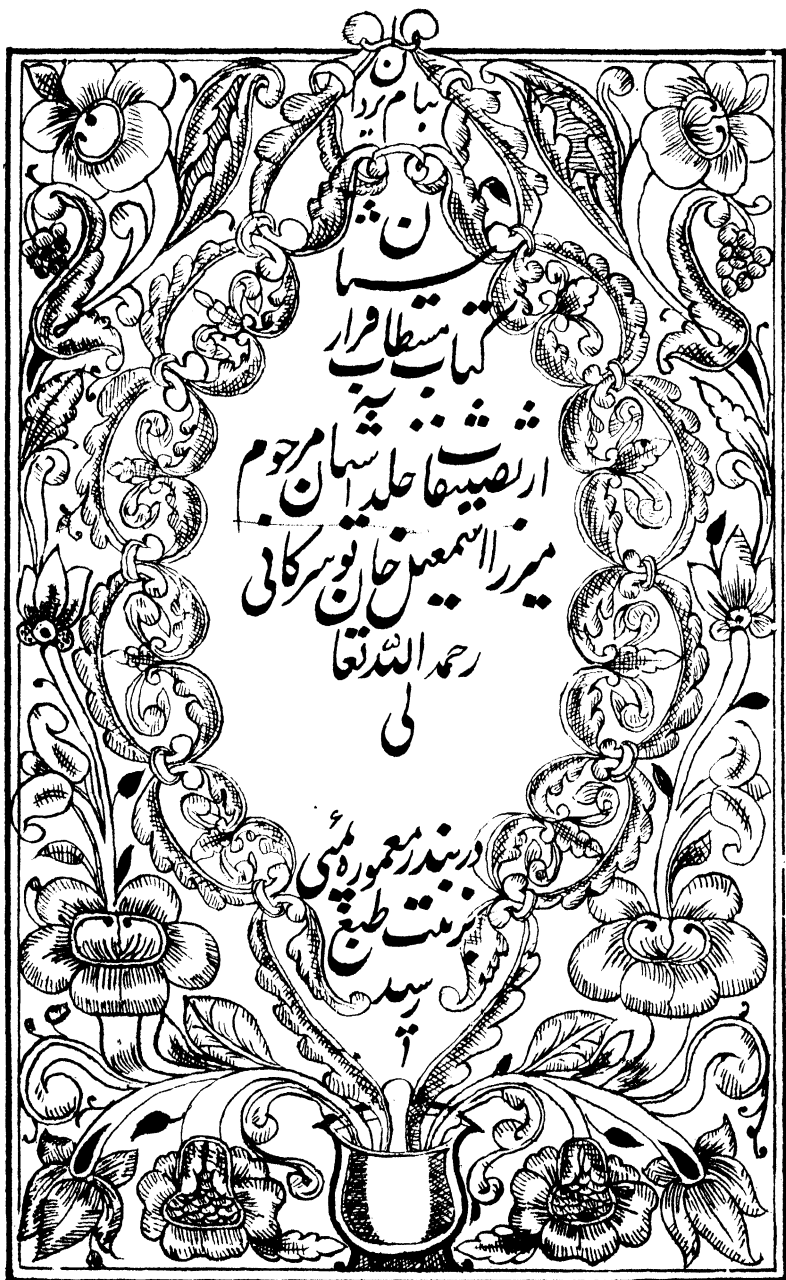 بنام یزدان
کتاب مستطاب فرازستان
از تصنیفات خلد آشیان مرحوم
میرزا اسمعیل خان توسرکانی
رحمه الله تعا
لی
در بندر معموره بمبئی
بزینت طبع
رسید